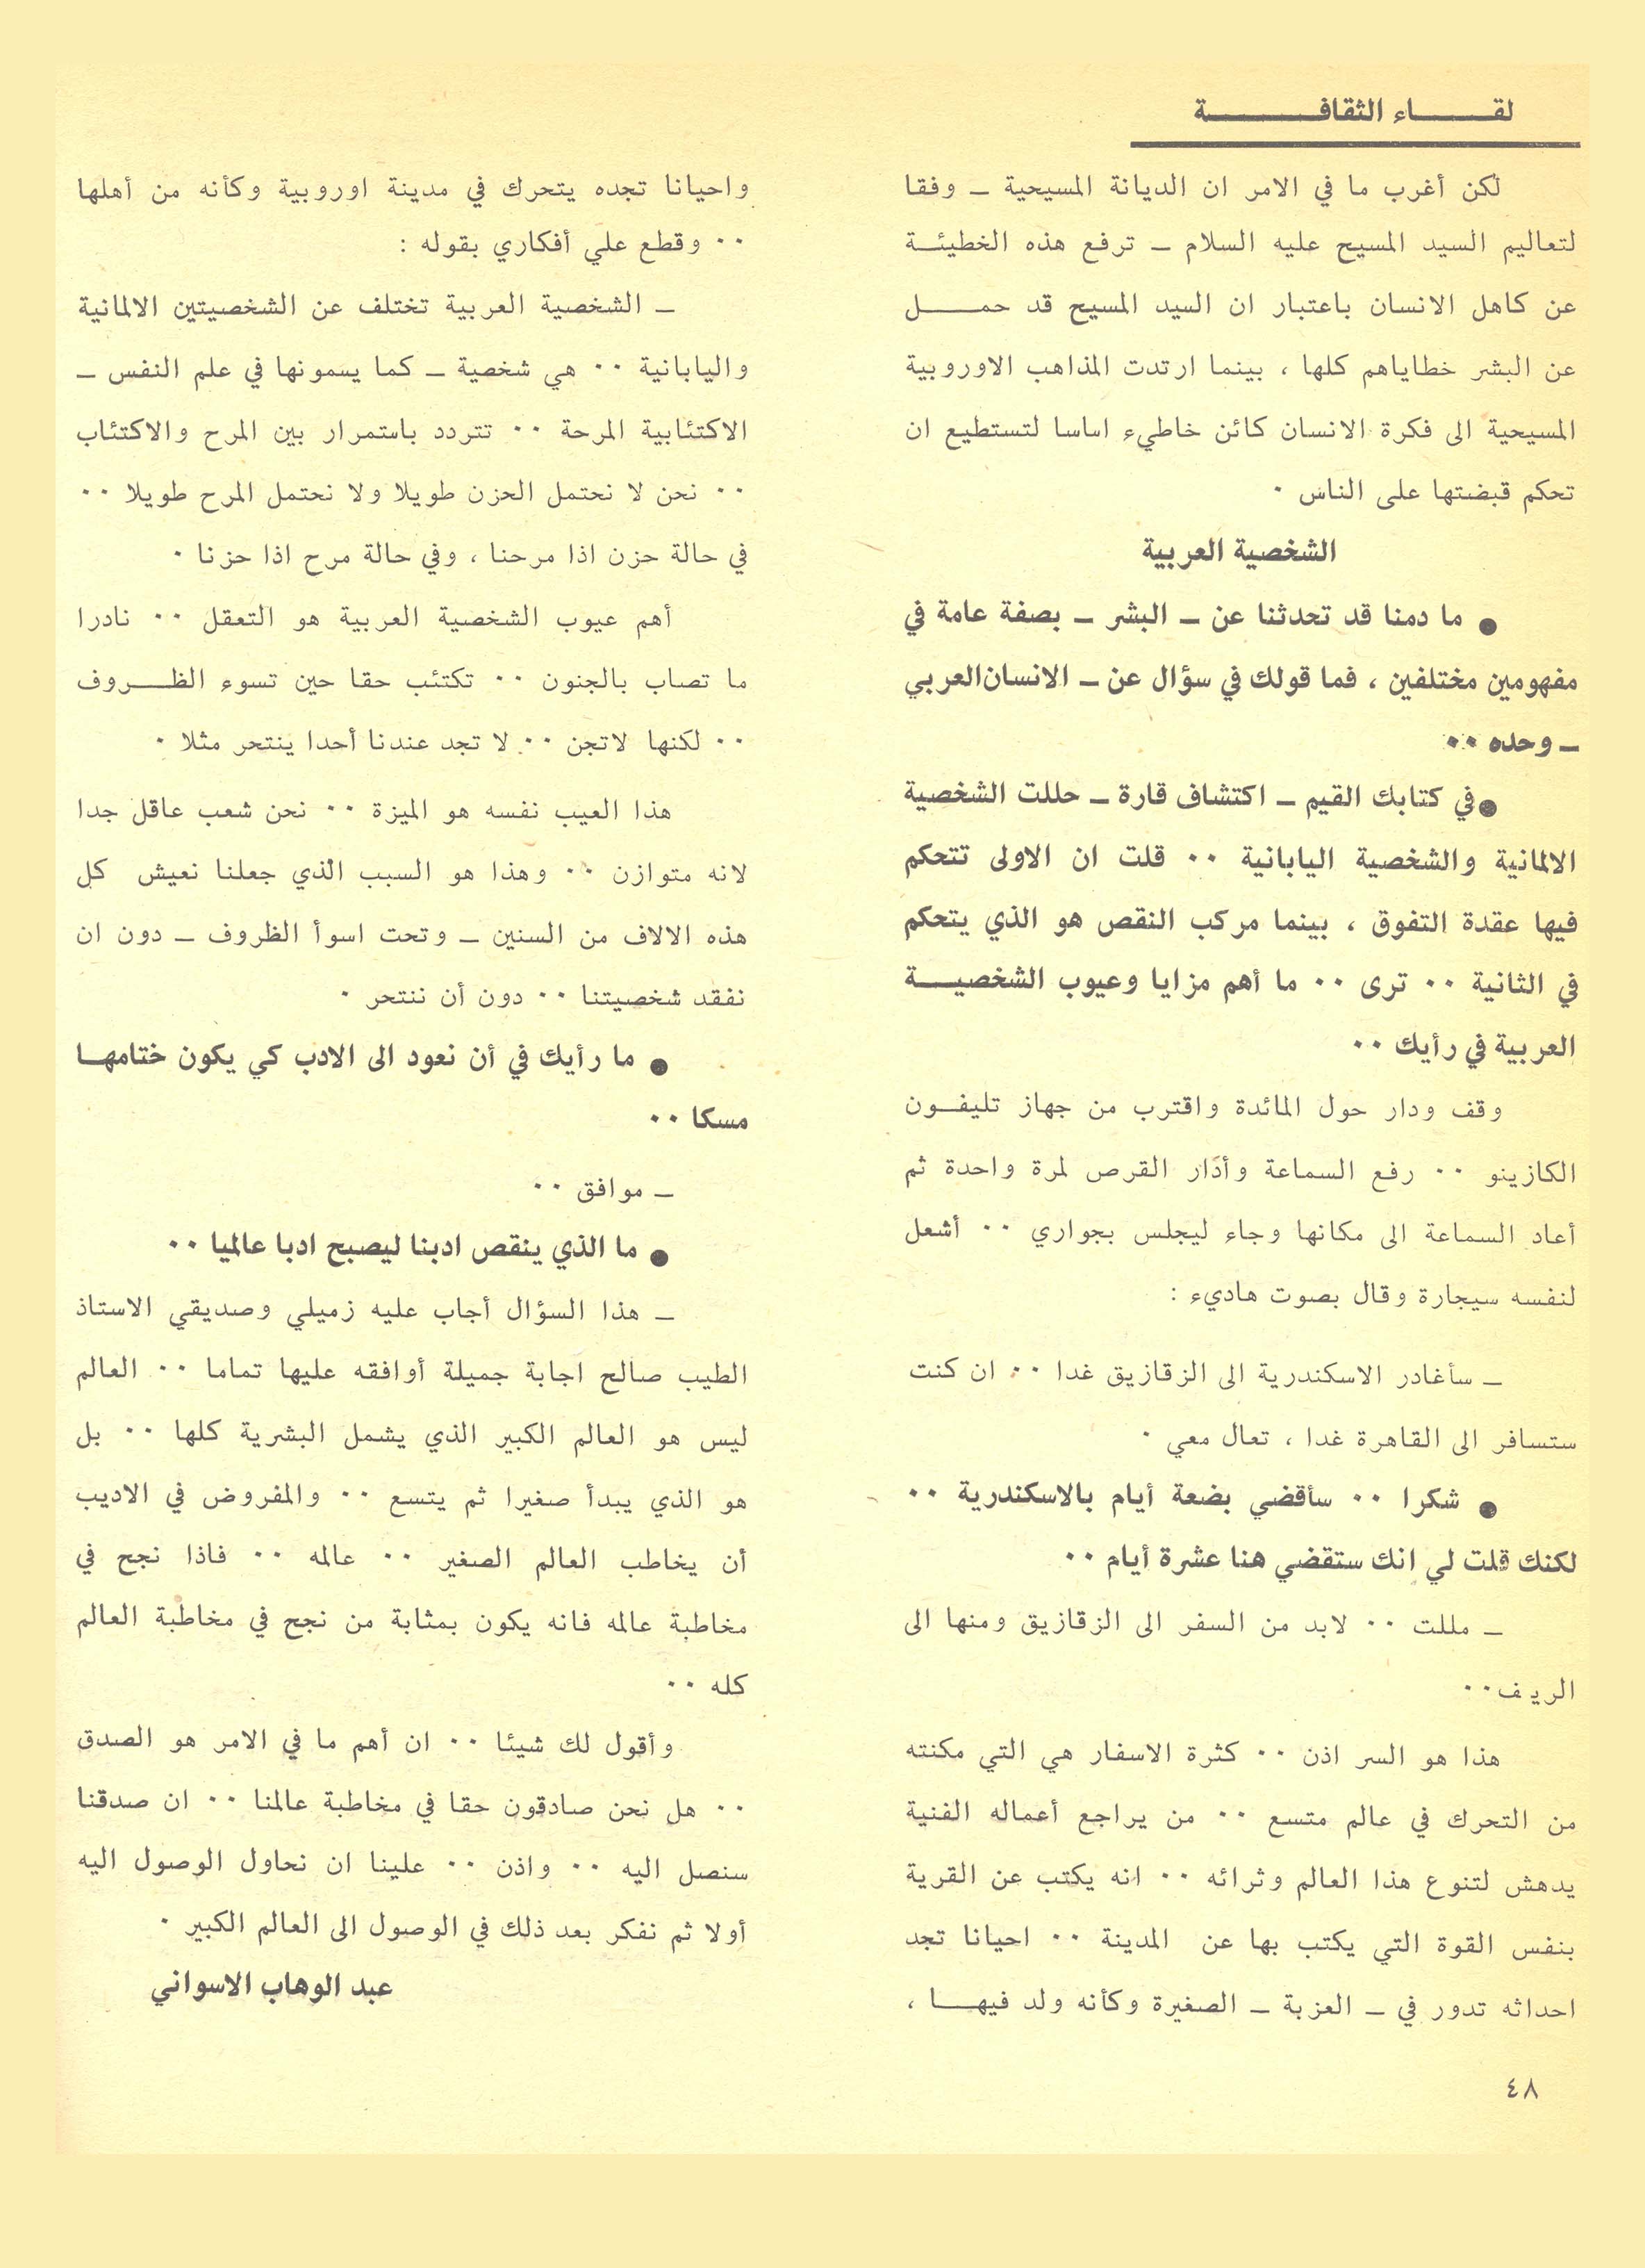 لقـــاء الثقافـــة
لكن أغرب ما في الامر ان الديانة المسيحية ــ وفقا
لتعاليم السيد المسيح عليه السلام ــ ترفع هذه الخطيئة
عن كاهل الانسان باعتبار ان السيد المسيح قد حمــل
عن البشر خطاياهم كلها ، بينما ارتدت المذاهب الاوروبية
المسيحية الى فكرة الانسان كائن خاطيء اساسا لتستطيع ان
تحكم قبضتها على الناس ٠
الشخصية العربية
● ما دمنا قد تحدثنا عن ــ البشر ــ بصفة عامة في
مفهومين مختلفين ، فما قولك في سؤال عن ــ الانسان العربي
ــ وحده ٠٠
● في كتابك القيم ــ اكتشاف قارة ــ حللت الشخصية
الالمانية والشخصية اليابانية ٠٠ قلت ان الاولى تتحكم
فيها عقدة التفوق ، بينما مركب النقص هو الذي يتحكم
في الثانية ٠٠ ترى ٠٠ ما أهم مزايا وعيوب الشخصيــة
العربية في رأيك ٠٠
وقف ودار حول المائدة واقترب من جهاز تليفـون
الكازينو ٠٠ رفع السماعة وأدار القرص لمرة واحدة ثم
أعاد السماعة الى مكانها وجاء ليجلس بجواري ٠٠ أشعل
لنفسه سيجارة وقال بصوت هاديء :
ــ سأغادر الاسكندرية الى الزقازيق غدا ٠٠ ان كنت
ستسافر الى القاهرة غدا ، تعال معي ٠
● شكرا ٠٠ سأقضي بضعة أيام بالاسكندرية ٠٠
لكنك قلت لي انك ستقضي هنا عشرة أيام ٠٠
ــ مللت ٠٠ لابد من السفر الى الزقازيق ومنها الى
الريف ٠٠
هذا هو السر اذن ٠٠ كثرة الاسفار هي التي مكنته
من التحرك في عالم متسع ٠٠ من يراجع أعماله الفنية
يدهش لتنوع هذا العالم وثرائه ٠٠ انه يكتب عن القرية
بنفس القوة التي يكتب بها عن المدينة ٠٠ احيانا تجد
احداثه تدور في ــ العزبة ــ الصغيرة وكأنه ولد فيهــا ،
واحيانا تجده يتحرك في مدينة اوروبية وكأنه من أهلها
٠٠ وقطع علي أفكاري بقوله :
ــ الشخصية العربية تختلف عن الشخصيتين الالمانية
واليابانية ٠٠ هي شخصية ــ كما يسمونها في علم النفس ــ
الاكتئابية المرحة ٠٠ تتردد باستمرار بين المرح والاكتئاب
٠٠ نحن لا نحتمل الحزن طويلا ولا نحتمل المرح طويلا ٠٠
في حالة حزن اذا مرحنا ، وفي حالة مرح اذا حزنا ٠
أهم عيوب الشخصية العربية هو التعقل ٠٠ نادرا
ما تصاب بالجنون ٠٠ تكتئب حقا حين تسوء الظــروف
٠٠ لكنها لاتجن ٠٠ لا تجد عندنا أحدا ينتحر مثلا ٠
هذا العيب نفسه هو الميزة ٠٠ نحن شعب عاقل جدا
لانه متوازن ٠٠ وهذا هو السبب الذي جعلنا نعيش كل
هذه الالاف من السنين ــ وتحت اسوأ الظروف ــ دون ان
نفقد شخصيتنا ٠٠ دون أن ننتحر ٠
● ما رأيك في أن نعود الى الادب كي يكون ختامهـا
مسكا ٠٠
ــ موافق ٠٠
● ما الذي ينقص ادبنا ليصبح ادبا عالميا ٠٠
ــ هذا السؤال أجاب عليه زميلي وصديقي الاستاذ
الطيب صالح اجابة جميلة أوافقه عليها تماما ٠٠ العالم
ليس هو العالم الكبير الذي يشمل البشرية كلها ٠٠ بل
هو الذي يبدأ صغيرا ثم يتسع ٠٠ والمفروض في الاديب
أن يخاطب العالم الصغير ٠٠ عالمه ٠٠ فاذا نجح في
مخاطبة عالمه فانه يكون بمثابة من نجح في مخاطبة العالم
كله ٠٠
وأقول لك شيئا ٠٠ ان أهم ما في الامر هو الصدق
٠٠ هل نحن صادقون حقا في مخاطبة عالمنا ٠٠ ان صدقنا
سنصل اليه ٠٠ واذن ٠٠ علينا ان نحاول الوصول اليه
أولا ثم نفكر بعد ذلك في الوصول الى العالم الكبير ٠
عبد الوهاب الاسواني
٤٨